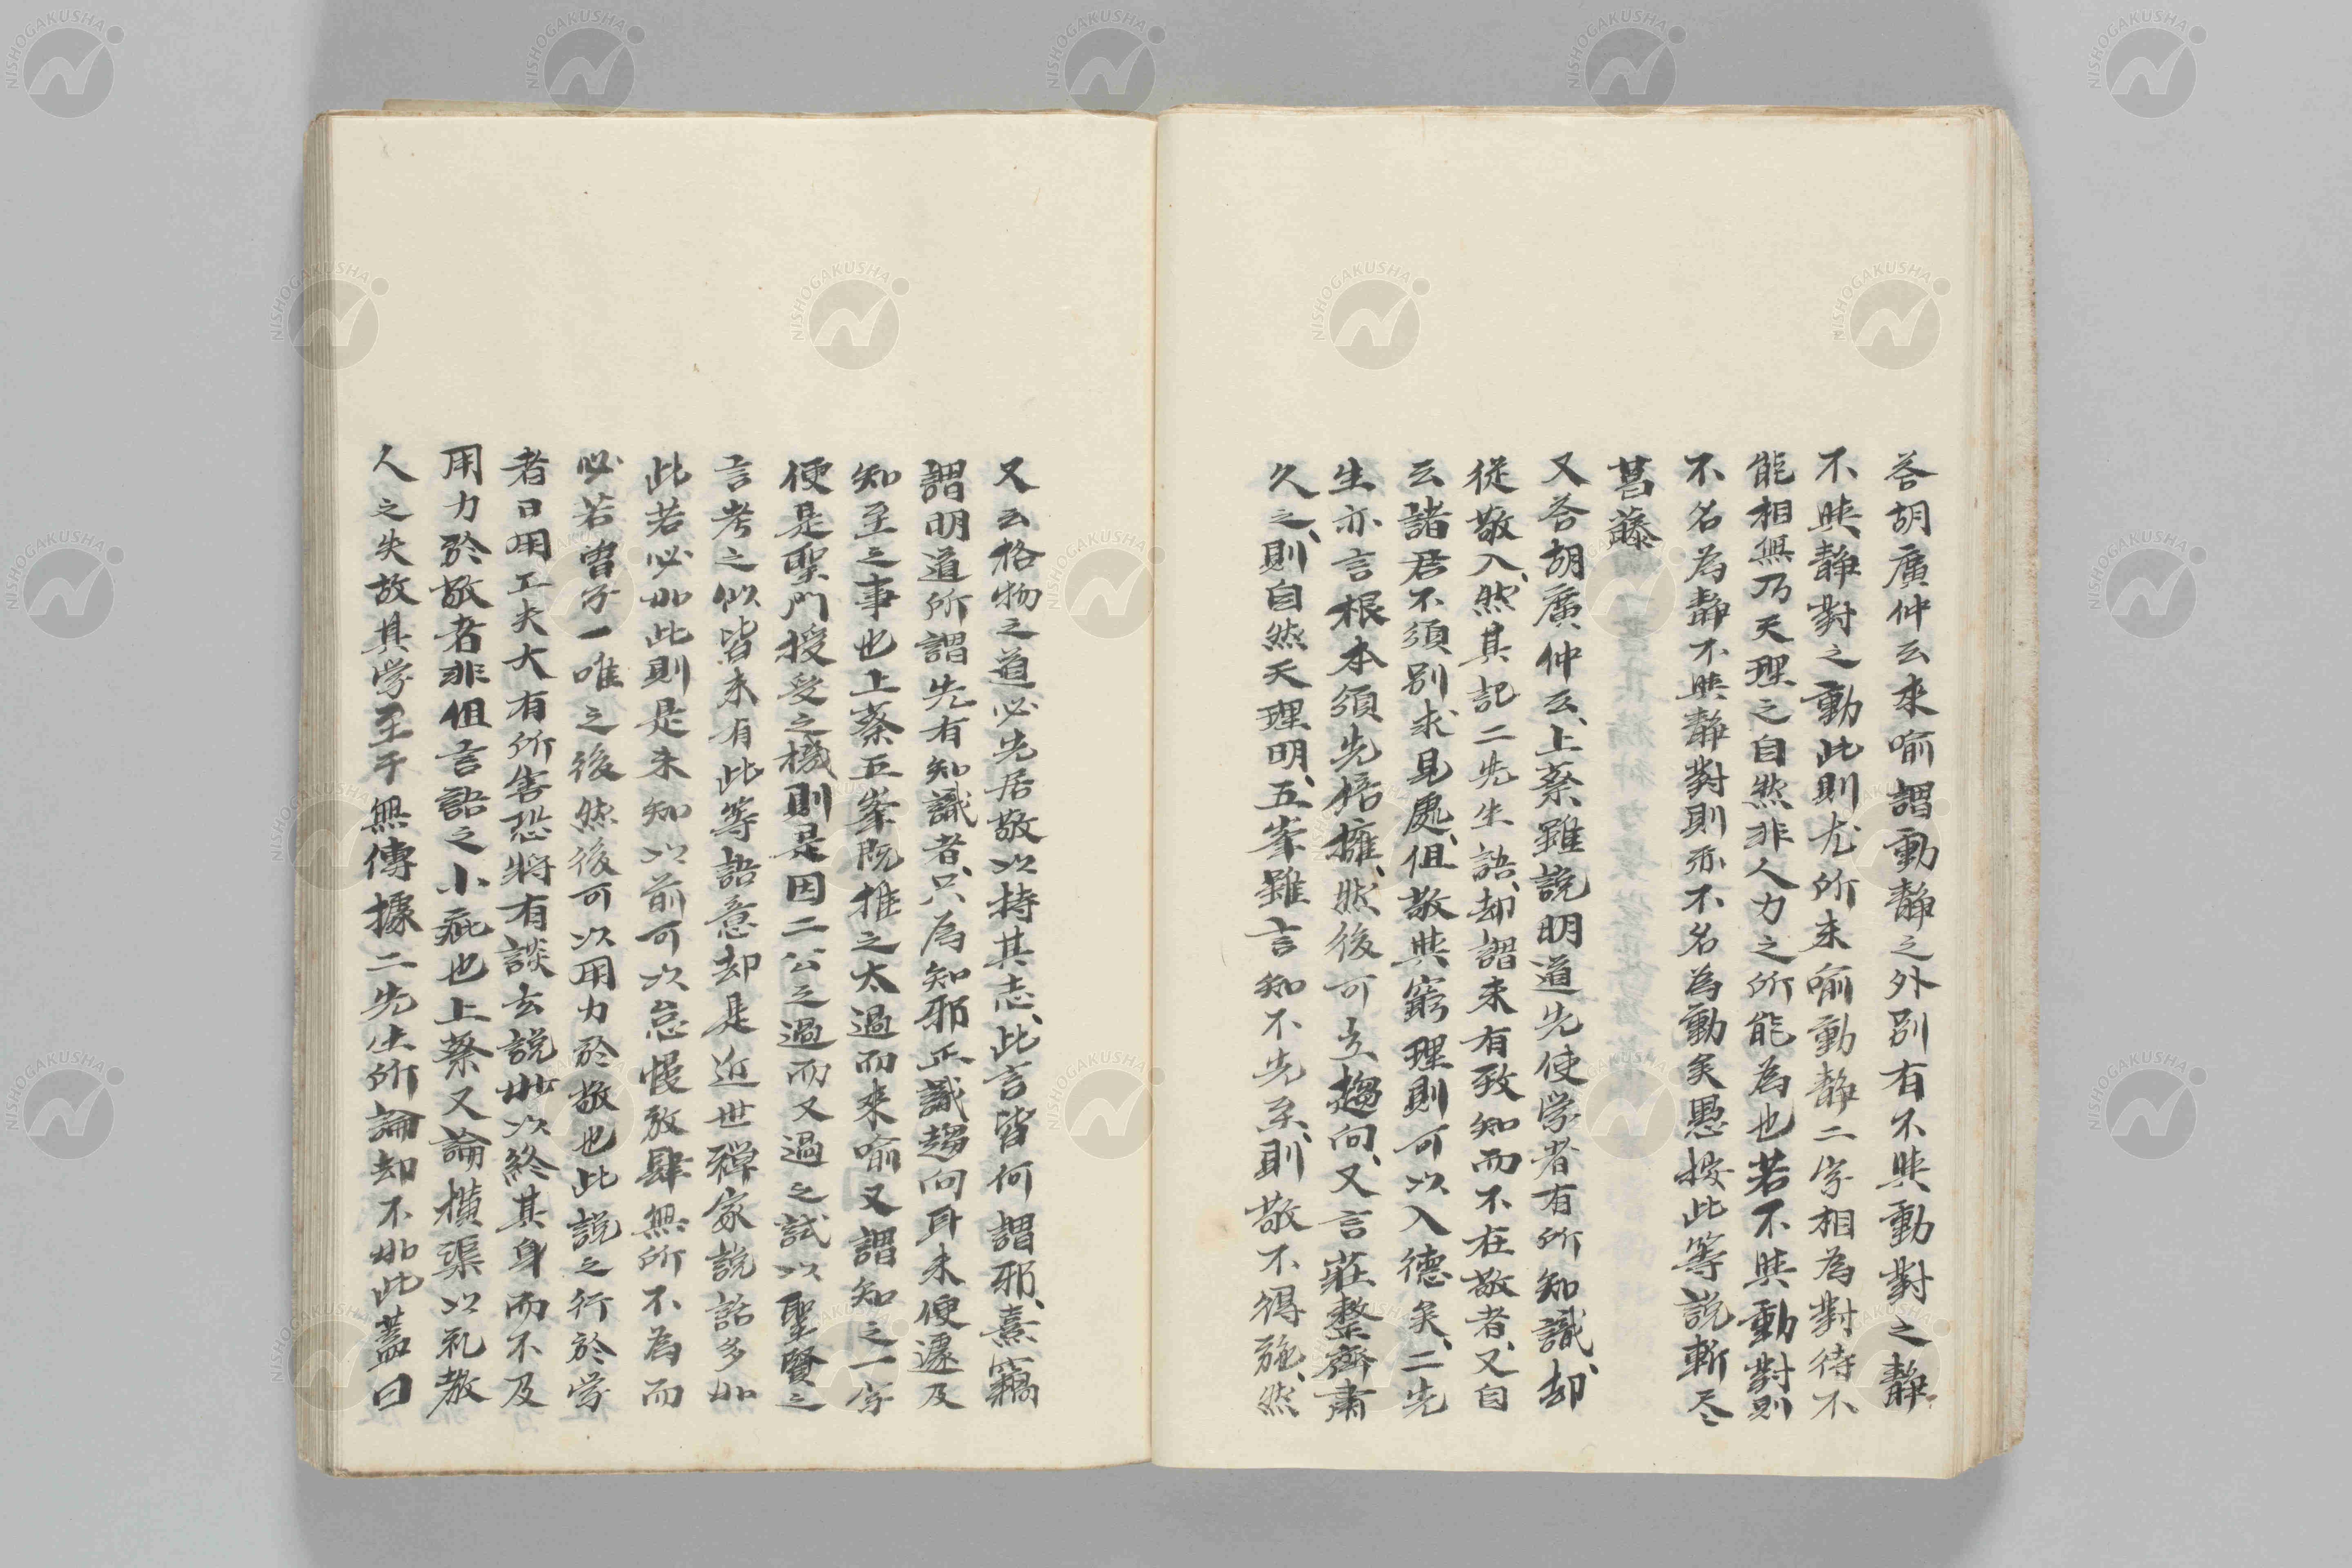 答胡廣仲云来喻謂動静之外別有不與動對之静
不與静對之動此則尤所未喻動静二字相為對待不
能相無乃天理之自然非人力之所能為也若不與動對則
不名為静不與静對則亦不名為動矣愚按此等說斬尽
葛藤
又答胡廣仲云、上蔡雖說明道先使学者有所知識、却
從敬入、然其記二先生語、却謂未有致知而不在敬者、又自
云諸君不須別求見處、但敬與窮理則可以入德矣、二先
生亦言根本須先培擁、然後可立趨向、又言莊整齊肅
久之、則自然天理明、五峯雖言知不先至、則敬不得施、然
又云格物之道必先居敬以持其志、此言皆何謂邪、熹竊
謂明道所謂先有知識者、只為知邪正識趨向耳未便遽及
知至之事也上蔡五峯既推之太過而来喻又謂知之一字
便是聖門授受之機則是因二公之過而又過之試以聖賢之
言考之似皆未有此等語意却是近世禪家說話多如
此若必如此則是未知以前可以怠慢放肆無所不為而
必若曽子一唯之後然後可以用力於敬也此說之行於学
者日用工夫大有所害恐將有談玄說妙以終其身而不及
用力於敬者非但言語之小疵也上蔡又論橫渠以礼教
人之失故其学至于無傳據二先生所論却不如此蓋曰
NISHOGAKUSHA